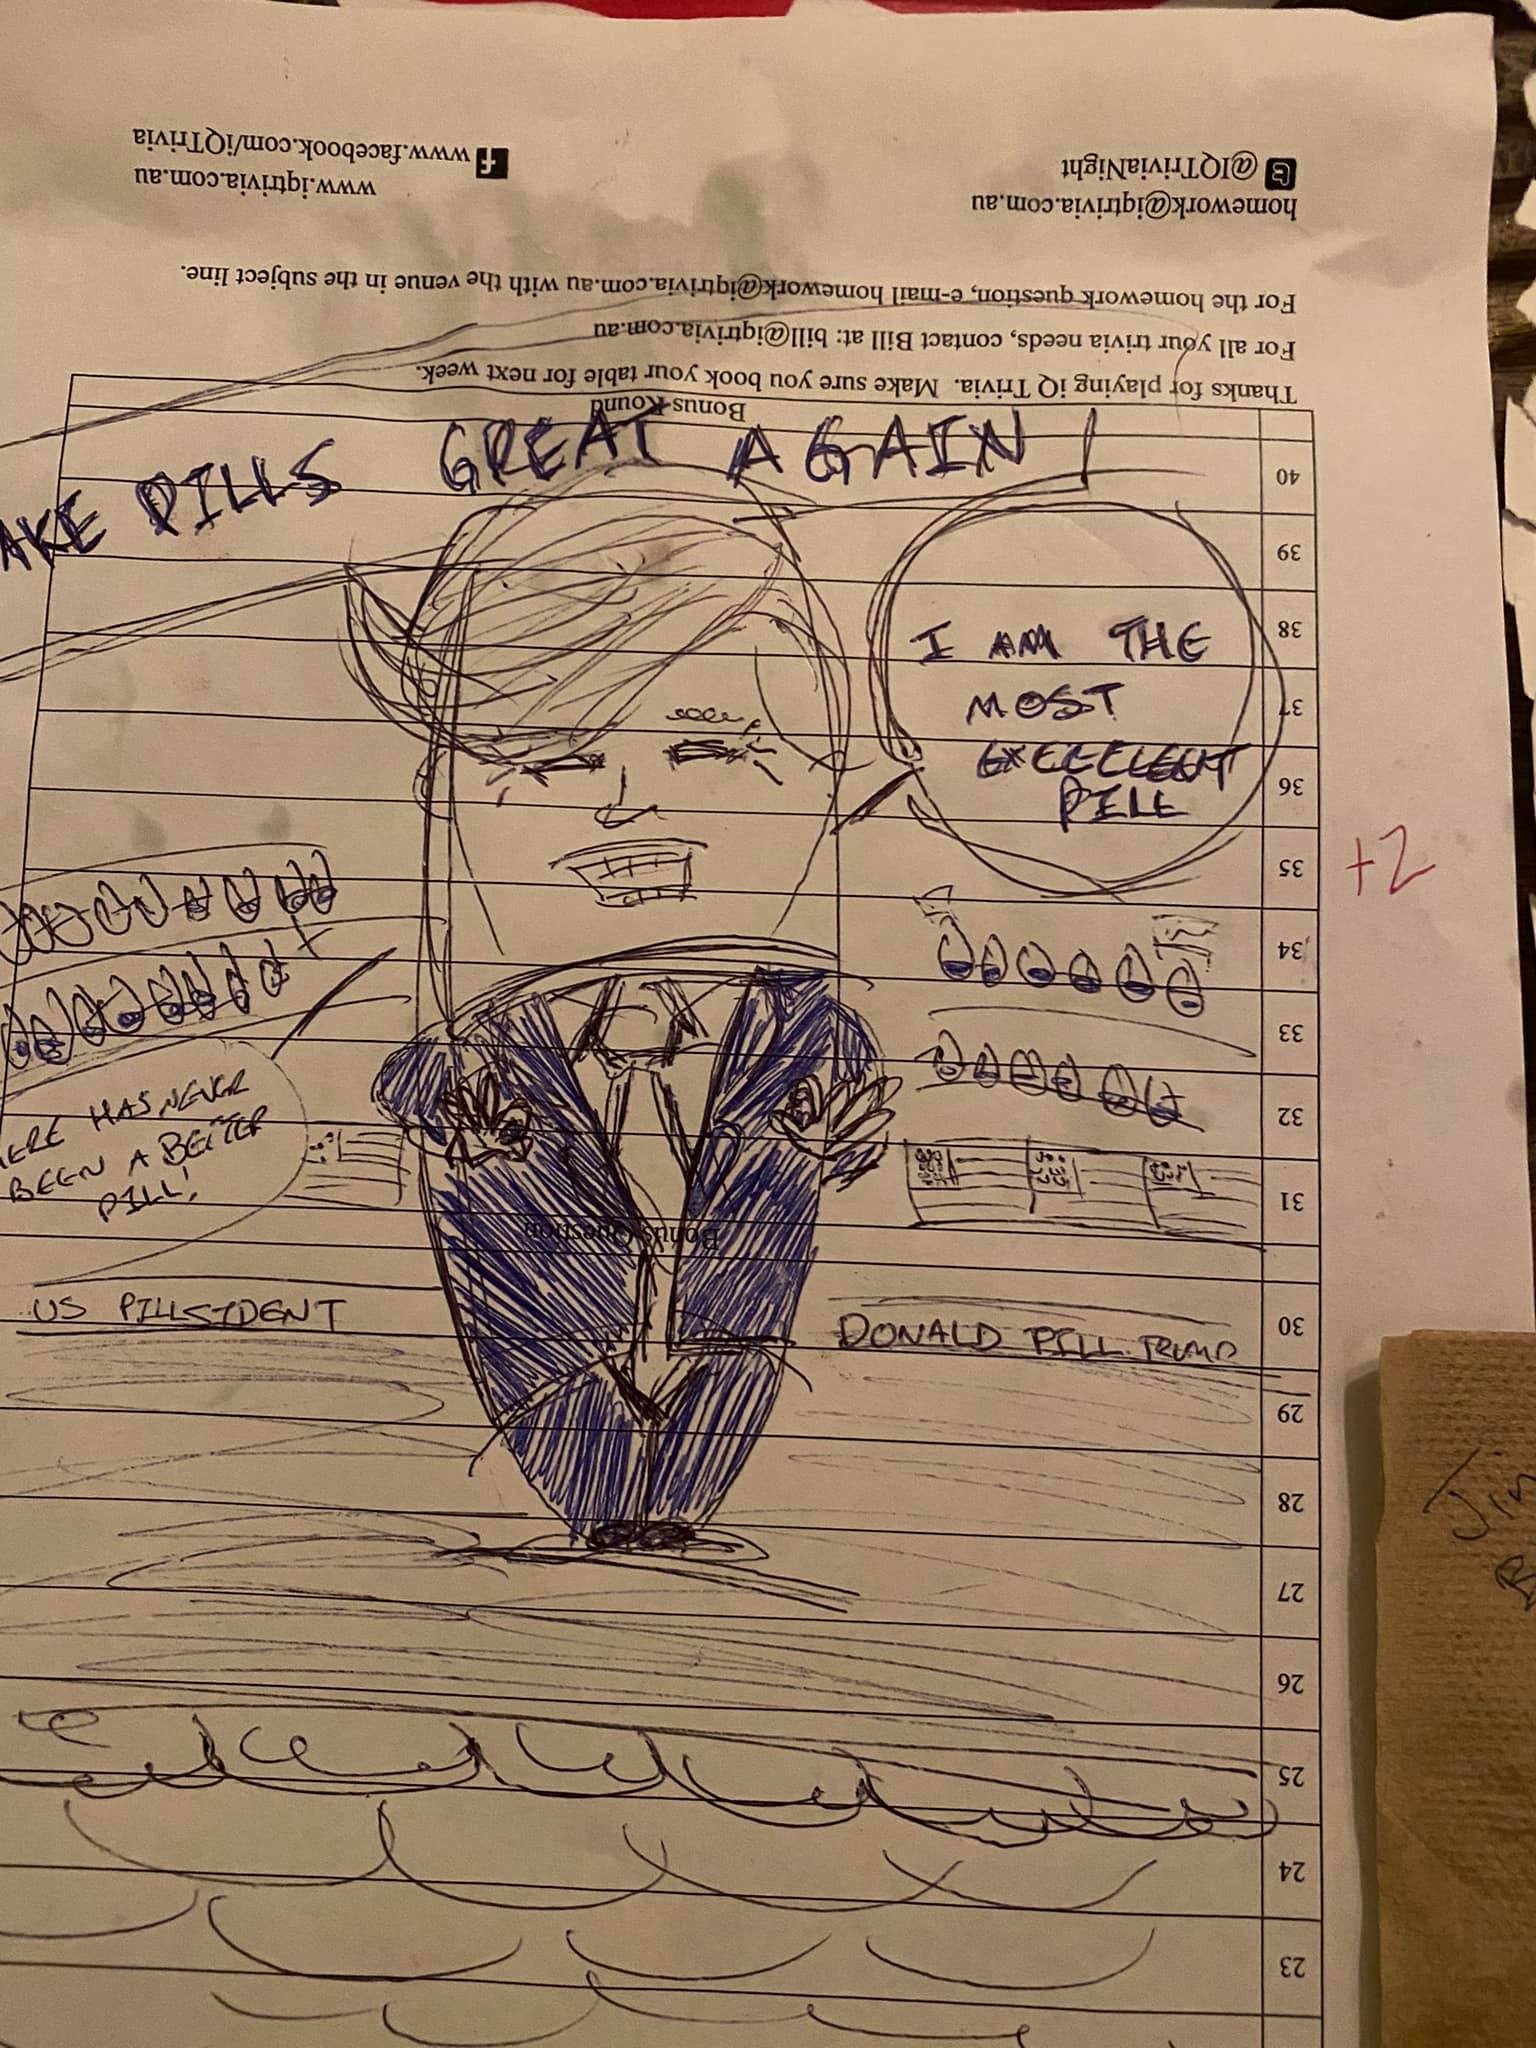 AKE PILLS GREAT AGAIN!
I AM THE
MOST
PILL
HAS NEVER
BEEN A BETTER
PILL!
US PILLSIDENT
DONALD PILL TRUMP
+2
23
24
25
26
27
28
29
30
Bonus Question
31
32
33
34
35
36
37
38
39
40
Bonus Round
Thanks for playing iQ Trivia. Make sure you book your table for next week.
For all your trivia needs, contact Bill at: bill@iqtrivia.com.au
For the homework question, e-mail homework@iqtrivia.com.au with the venue in the subject line.
homework@iqtrivia.com.au
www.iqtrivia.com.au
@IQTriviaNight
www.facebook.com/iQTrivia